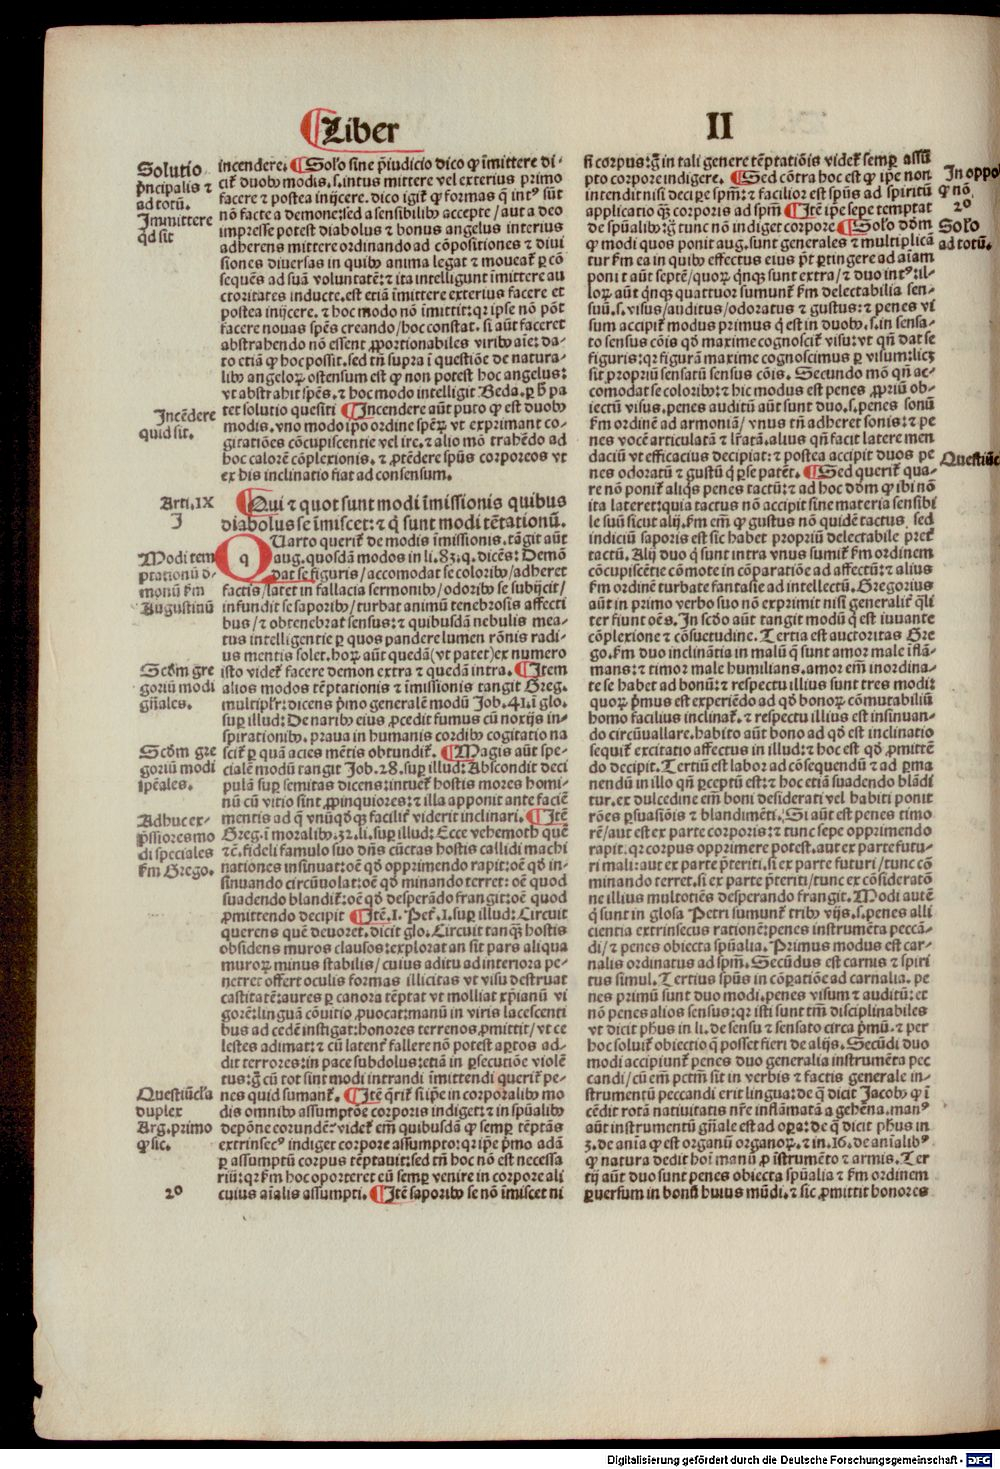 Liber
II
Solutio
p̄ncipalis ⁊
ad totū.
Immittere
qd sit
incendere. ¶ Solō sine p̄iudicio dico ꝙ īmittere di-
cit᷑ duobꝰ modis. s. intus mittere vel exterius primo
facere ⁊ postea inijcere. dico igit᷑ ꝙ formas q̄ intꝰ sūt
nō facte a demone: sed a sensibilibꝰ accepte / aut a deo
impresse potest diabolus ⁊ bonus angelus interius
adherens mittere ordinando ad cōpositiones ⁊ diui
siones diuersas in quibꝰ anima legat ⁊ moueat᷑ ꝑ cō
sequēs ad suā voluntatē: ⁊ ita intelligunt īmittere au
ctoritates inducte. est etiā īmittere exterius facere et
postea inijcere. ⁊ hoc modo nō īmittit: qr ipse nō pōt
facere nouas sp̄es creando / hoc constat. si aūt faceret
abstrahendo nō essent ꝓportionabiles viribꝰ aīe: da-
to etiā ꝙ hoc possit. sed tn̄ supra ī questiōe de natura-
libꝰ angeloꝝ ostensum est ꝙ non potest hoc angelus:
vt abstrahit sp̄es. ⁊ hoc modo intelligit Beda. ꝑ ħ pa
tet solutio quesiti ¶ Incendere aūt puto ꝙ est duobꝰ
modis. vno modo ip̄o ordine sp̄eꝝ vt exprimant co-
gitatiōes cōcupiscentie vel ire. ⁊ alio mō trahēdo ad
hoc calorē cōplexionis. ⁊ ꝓtēdere spūs corporeos vt
ex his inclinatio fiat ad consensum.
Incēdere
quid sit.
Arti. IX
I
¶ Qui ⁊ quot sunt modi īmissionis quibus
diabolus se īmiscet: ⁊ q̄ sunt modi tētationū.
Modi tem
ptationū d-
monū ẜm
Augustinū
QUarto querit᷑ de modis īmissionis. tāgit aūt
aug. quosdā modos in li. 83. q. dicēs: Demō
dat se figuris / accomodat se coloribꝰ / adheret
factis / latet in fallacia sermonibꝰ / odoribꝰ se subijcit /
infundit se saporibꝰ / turbat animū tenebrosis affecti
bus / ⁊ obtenebrat sensus: ⁊ quibusdā nebulis mea-
tus intelligentie ꝑ quos pandere lumen rōnis radi-
us mentis solet. hoꝝ aūt quedā (vt patet) ex numero
isto videt᷑ facere demon extra ⁊ quedā intra. ¶ Item
alios modos tēptationis ⁊ īmissionis tangit Greg.
multipl'r: dicens p̄mo generalē modū Job. 41. ī glo.
suꝑ illud: De naribꝰ eius ꝓcedit fumus cū noxijs in-
spirationibꝰ. praua in humanis cordibꝰ cogitatio na
scit᷑ ꝑ quā acies mētis obtundit᷑. ¶ Magis aūt spe-
cialē modū tangit Job. 28. suꝑ illud: Abscondit deci
pulā suꝑ semitas dicens: intuet᷑ hostis mores homi-
nū cū vitio sint ꝓpinquiores: ⁊ illa apponit ante faciē
mentis ad q̄ vnūqd̓ꝗ facili' viderit inclinari. ¶ Itē
Greg. ī moralibꝰ. 32. li. suꝑ illud: Ecce vehemoth quē
⁊c̄. fideli famulo suo dn̄s cūctas hostis callidi machi
nationes insinuat: oē qd̓ opprimendo rapit: oē qd̓ in-
sinuando circūuolat: oē qd̓ minando terret: oē quod
suadendo blandit᷑: oē qd̓ desperādo frangit: oē quod
ꝓmittendo decipit ¶ Itē. I. Pet᷑. I. suꝑ illud: Circuit
querens quē deuoret. dicit glo. Circuit tanꝗ hostis
obsidens muros clausos: explorat an sit pars aliqua
muroꝝ minus stabilis / cuius aditu ad interiora pe-
netret offert oculis formas illicitas vt visu destruat
castitatē: aures ꝑ canora tēptat vt molliat xp̄ianū vi
gorē: linguā cōuitio ꝓuocat: manū in viris lacescenti
bus ad cedē instigat: honores terrenos ꝓmittit / vt ce
lestes adimat: ⁊ cū latent᷑ fallere nō potest aptos ad-
dit terrores: in pace subdolus: etiā in ꝑsecutiōe violē
tus: ḡ cū tot sint modi intrandi īmittendi querit᷑ pe-
nes quid sumant᷑. ¶ Itē q̄rit᷑ si ip̄e in corporalibꝰ mo
dis omnibꝰ assumptōe corporis indiget: ⁊ in spūalibꝰ
depōne corundē: videt᷑ em̄ quibusdā ꝙ semꝑ tēptās
extrinsecꝰ indiget corpore assumpto: qr ip̄e p̄mo adā
ꝑ assumptū corpus tēptauit: sed tn̄ hoc nō est necessa
riū: qr ẜm hoc oporteret eū semꝑ venire in corpore ali
cuius aīalis assumpti. ¶ Itē saporibꝰ se nō īmiscet ni
Scd̓m gre
goriū modi
gn̄ales.
Scd̓m gre
goriū modi
sp̄eales.
Adhuc ex-
p̄ssiores mo
di speciales
ẜm Grego.
Questiūcl'a
duplex
Arg. primo
ꝙ sic.
2º
si corpus: ḡ in tali genere tēptatiōis videt᷑ semꝑ assū
pto corpore indigere. ¶ Sed cōtra hoc est ꝙ ip̄e non
intendit nisi decipe spm̄: ⁊ facilior est spūs ad spiritū
applicatio q̄ꝫ corporis ad spm̄ ¶ Itē ip̄e sepe temptat
de spūalibꝰ: ḡ tunc nō indiget corpore ¶ Solō dōm
ꝙ modi quos ponit aug. sunt generales ⁊ multiplicā
tur ẜm ea in quibꝰ effectus eius p̄t ꝑtingere ad aīam
ponit aūt septē / quoꝝ q̄nꝗ sunt extra / ⁊ duo intꝰ: il-
loꝝ aūt q̄nꝗ quattuor sumunt᷑ ẜm delectabilia sen-
suū. s. visus / auditus / odoratus ⁊ gustus: ⁊ penes vi
sum accipit᷑ modus primus q̄ est in duobꝰ. s. in sensa-
to sensus cōis qd̓ maxime cognoscit᷑ visu: vt qn̄ dat se
figuris: qr figurā maxime cognoscimus ꝑ visum: licꝫ
sit ꝓpriū sensatū sensus cōis. Secundo mō qn̄ ac-
comodat se coloribꝰ: ⁊ hic modus est penes ꝓpriū ob-
iectū visus. penes auditū aūt sunt duo. s. penes sonū
ẜm ordinē ad armoniā / vnus tn̄ adheret sonis: ⁊ pe
nes vocē articulatā ⁊ lr̄atā. alius qn̄ facit latere men
daciū vt efficacius decipiat: ⁊ postea accipit duos pe
nes odoratū ⁊ gustū q̄ ꝑ se patēt. ¶ Sed querit᷑ qua-
re nō ponit᷑ aliq̄s penes tactū: ⁊ ad hoc dōm ꝙ ibi nō
ita lateret: quia tactus nō accipit sine materia sensibi
le suū sicut alij. ẜm em̄ ꝙ gustus nō quidē tactus sed
indiciū saporis est sic habet propriū delectabile pret᷑
tactū. Alij duo q̄ sunt intra vnus sumit᷑ ẜm ordinem
cōcupiscētie cōmote in cōparatiōe ad affectū: ⁊ alius
ẜm ordinē turbate fantasie ad intellectū. Gregorius
aūt in primo verbo suo nō exprimit nisi generalit᷑ q̄li
ter fiunt oēs. In scd̓o aūt tangit modū q̄ est iuuante
cōplexione ⁊ cōsuetudine. Tertia est auctoritas Gre
go. ẜm duo inclināntia in malū q̄ sunt amor male īflā-
mans: ⁊ timor male humilians. amor em̄ inordina-
te se habet ad bonū: ⁊ respectu illius sunt tres modi:
quoꝝ p̄mus est experiēdo ad qd̓ bonoꝝ cōmutabiliū
homo facilius inclinat᷑. ⁊ respectu illius est insinuan-
do circūuallare. habito aūt bono ad qd̓ est inclinatio
sequit᷑ excitatio affectus in illud: ⁊ hoc est qd̓ ꝓmittē
do decipit. Tertiū est labor ad cōsequendū ⁊ ad ꝑma
nendū in illo qn̄ ꝑceptū est: ⁊ hoc etiā suadendo blādi
tur. ex dulcedine em̄ boni desiderati vel habiti ponit
rōes ꝑsuasiōis ⁊ blandimēti. Si aūt est penes timo
rē / aut est ex parte corporis: ⁊ tunc sepe opprimendo
rapit. qr corpus opprimere potest. aut ex parte futu-
ri mali: aut ex parte p̄teriti. si ex parte futuri / tunc cō
minando terret. si ex parte p̄teriti / tunc ex cōsideratō
ne illius multotiēs desperando frangit. Modi autē
q̄ sunt in glosa Petri sumunt᷑ tribꝰ vijs. s. penes alli
cientia extrinsecus rationē: penes instrumēta peccā-
di / ⁊ penes obiecta spūalia. Primus modus est car-
nalis ordinatus ad spm̄. Secūdus est carnis ⁊ spiri
tus simul. Tertius spūs in cōꝑatiōe ad carnalia. pe
nes primū sunt duo modi. penes visum ⁊ auditū: et
nō penes alios sensus: qr isti sunt tm̄ disciplinabiles
vt dicit ph̄us in li. de sensu ⁊ sensato circa p̄mū. ⁊ per
hoc soluit᷑ obiectio q̄ posset fieri de alijs. Secūdi duo
modi accipiunt᷑ penes duo generalia instrumēta pec
candi / cū em̄ pctm̄ sit in verbis ⁊ factis generale in-
strumentū peccandi erit lingua: de q̄ dicit Jacob̓ ꝙ ī
cēdit rotā natiuitatis nr̄e inflāmatā a gehēna. manꝰ
aūt instrumentū gn̄ale est ad opꝑa: de q̄ dicit ph̄us in
3. de aīa ꝙ est organū organoꝝ. ⁊ in. 16. de aīalibꝰ
ꝙ natura dedit hoī manū ꝓ īstrumēto ⁊ armis. Ter
tij aūt duo sunt penes obiecta spūalia ⁊ ẜm ordinem
ꝑuersum in bonū huius mūdi. ⁊ sic ꝓmittit honores
In oppo
ꝙ nō.
2º
Solō
ad totū.
Questiūc
Digitalisierung gefördert durch die Deutsche Forschungsgemeinschaft - DFG